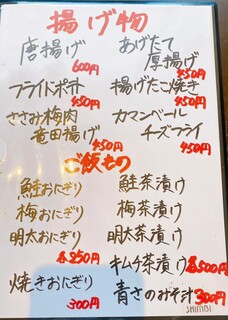 揚げ物
唐揚げ
600円
あげたて
厚揚げ
450円
フライドポテト
450円
揚げたこ焼き
450円
ささみ梅肉
竜田揚げ
450円
カマンベール
チーズフライ
450円
ご飯もの
鮭おにぎり
梅おにぎり
明太おにぎり
各250円
鮭茶漬け
梅茶漬け
明太茶漬け
キムチ茶漬け
各500円
焼きおにぎり
300円
青さのみそ汁
300円